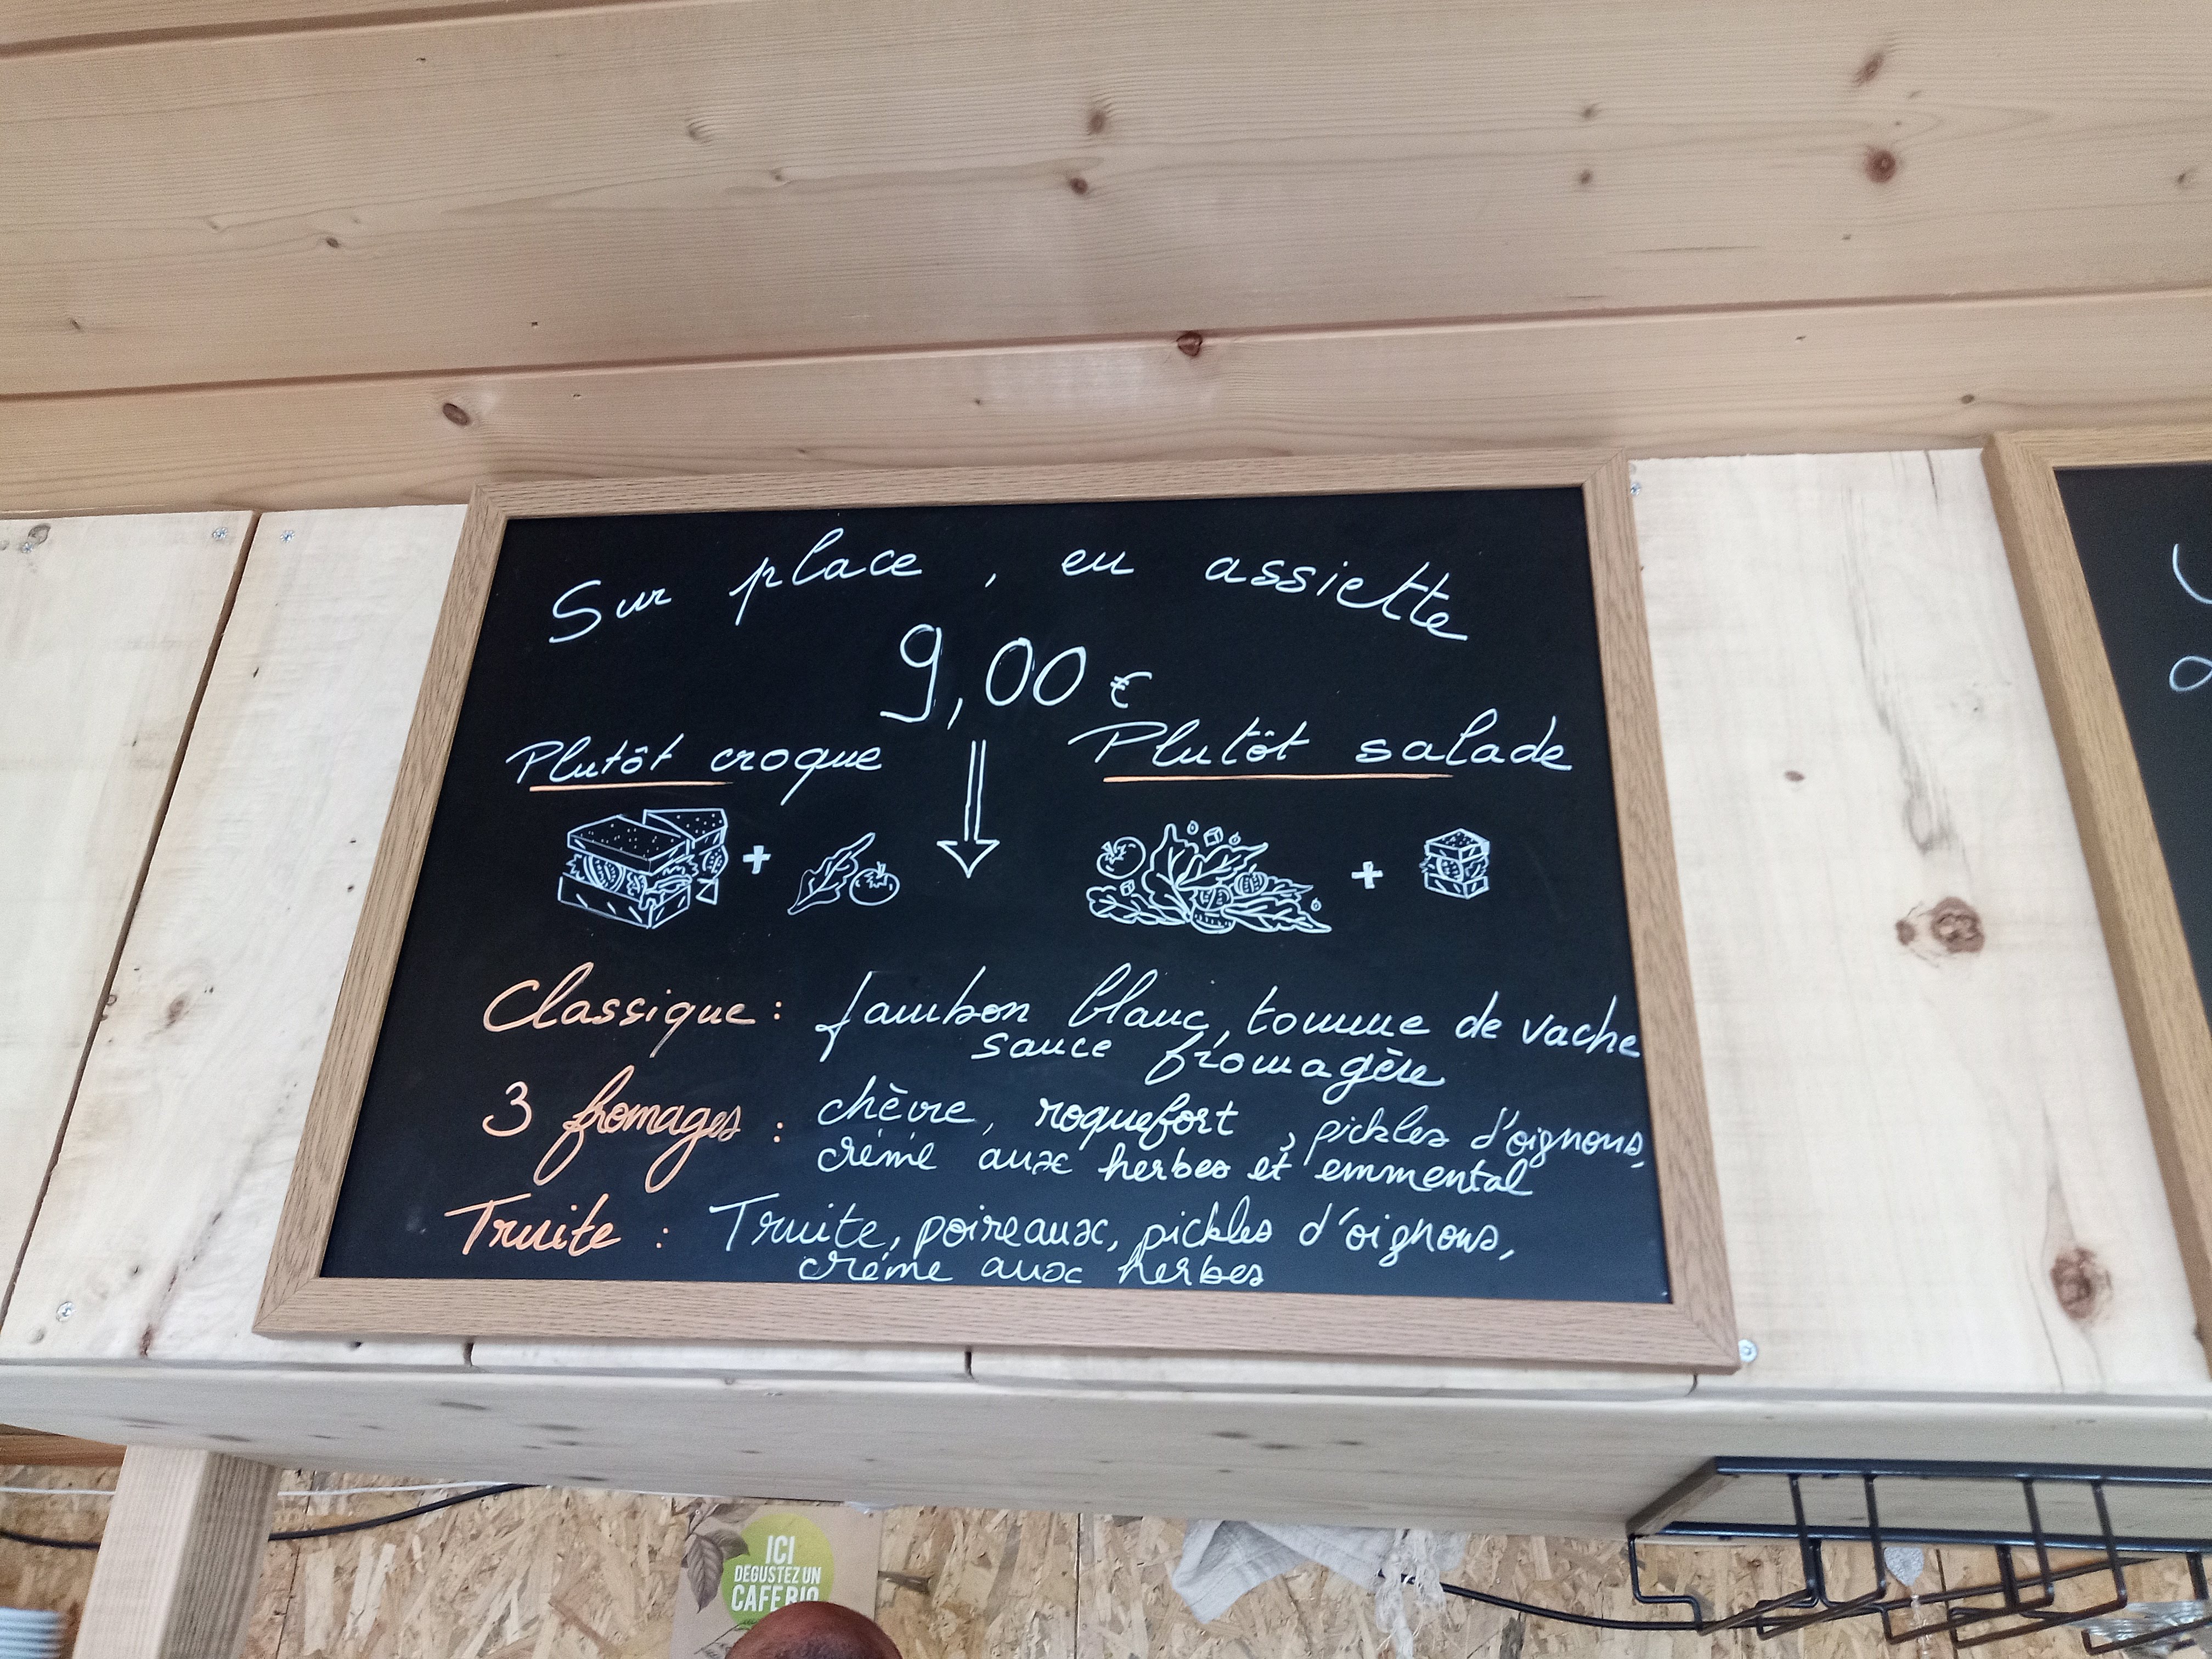 Sur place, en assiette
9,00 €
Plutôt croque
Plutôt salade
+
+
Classique : Jambon blanc, tomme de vache
sauce fromagère
3 fromages : chèvre, roquefort, pickles d'oignons,
crème aux herbes et emmental
Truite : Truite, poireaux, pickles d'oignons,
crème aux herbes
ICI
DEGUSTEZ UN
CAFE BIO